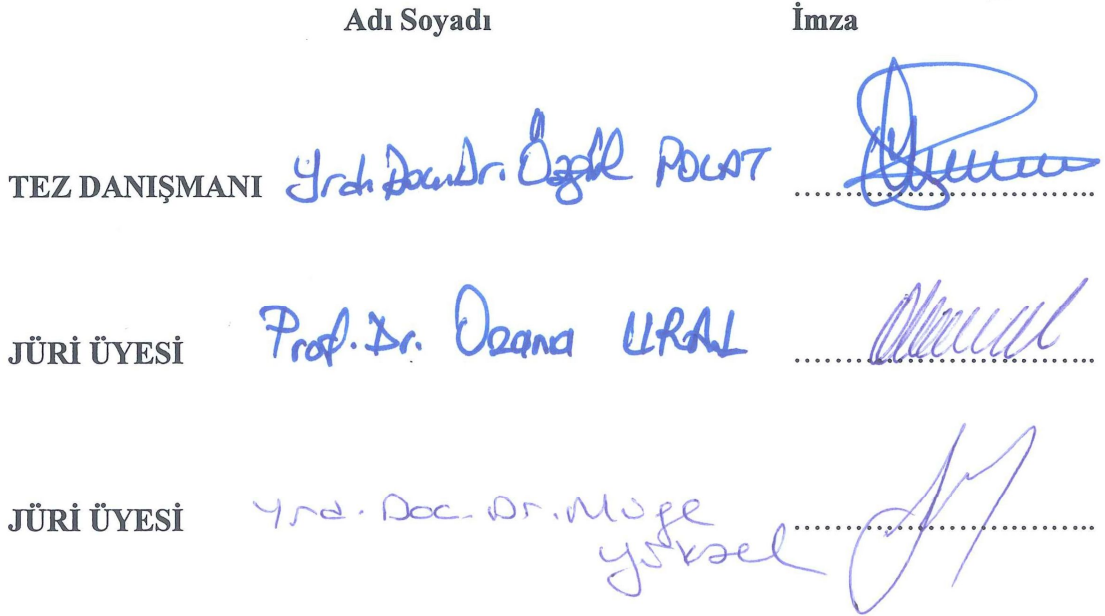 Adı Soyadı İmza
TEZ DANIŞMANI Yrd. Doç. Dr. Özgül POLAT
JÜRİ ÜYESİ Prof. Dr. Ozana URAL
JÜRİ ÜYESİ Yrd. Doc. Dr. Müge
Yüksel